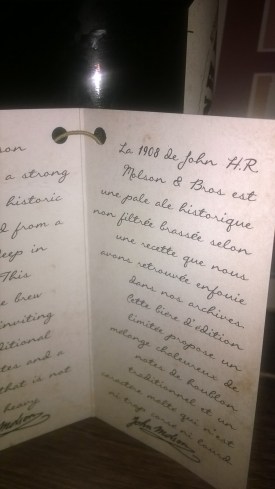 son
a strong
historic
d from a
eep in
This
e brew
inviting
ditional
tes and a
that is not
heavy.
La 1908 de John H.R.
Molson & Bros est
une pale ale historique
non filtrée brassée selon
une recette que nous
avons retrouvée enfouie
dans nos archives.
Cette bière d'édition
limitée propose un
mélange chaleureux de
notes de houblon
traditionnel et un
caractère malté qui n'est
ni trop sucré ni lourd.
John Molson